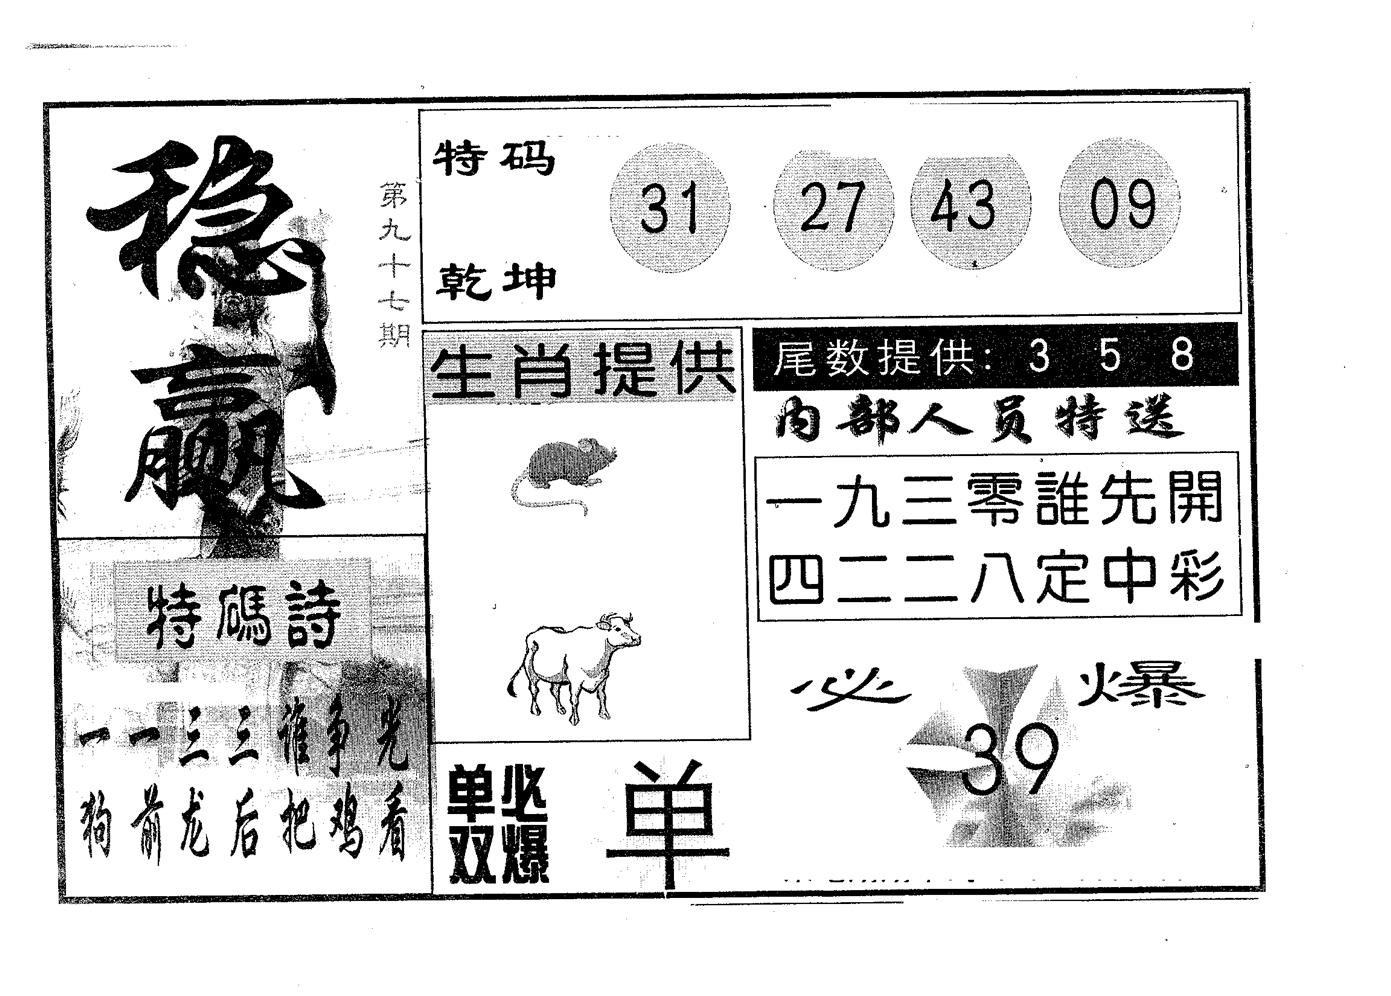 稳赢
第九十七期
特码
乾坤
31 27 43 09
生肖提供
尾数提供: 3 5 8
内部人员特送
一九三零誰先開
四二二八定中彩
特碼詩
一一三三谁争光
狗前龙后把鸡看
单双
必爆
单
必爆
39